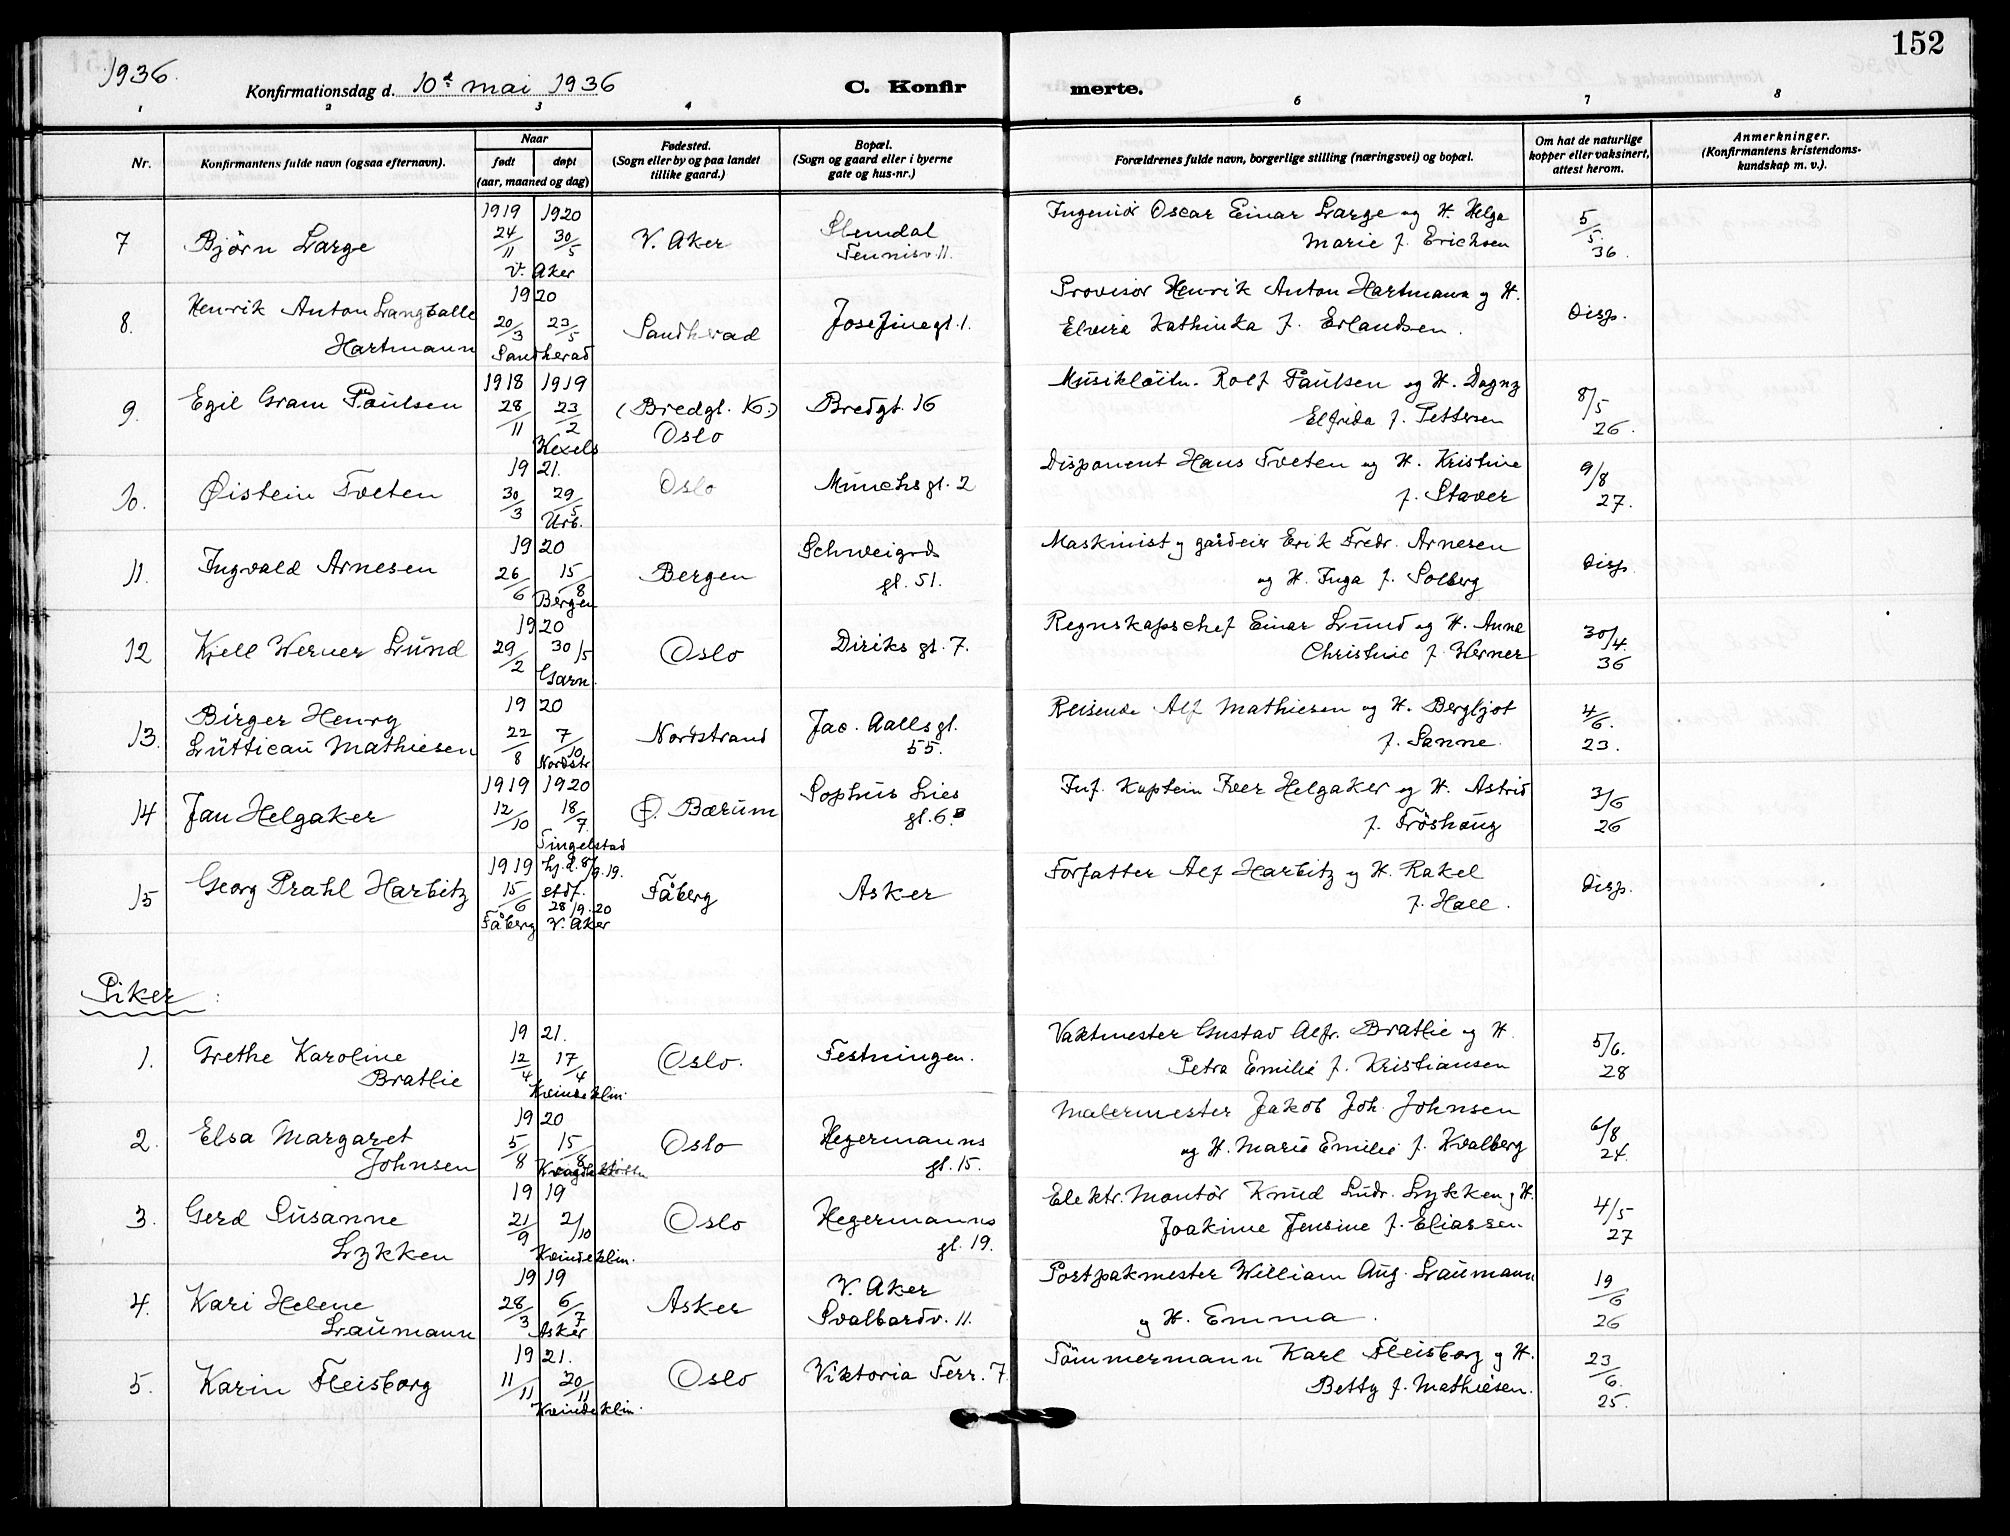 152
1936.
Konfirmationsdag d. 10d mai 1936
C. Konfir merte.
1 2 3 4 6 7 8
Nr.
Konfirmantens fulde navn (ogsaa efternavn).
Naar
født
døpt
(aar, maaned og dag)
Fødested.
(Sogn eller by og paa landet
tillike gaard.)
Bopæl.
(Sogn og gaard eller i byerne
gate og hus-nr.)
Forældrenes fulde navn, borgerlige stilling (næringsvei) og bopæl.
Om hat de naturlige
kopper eller vaksinert,
attest herom.
Anmerkninger.
(Konfirmantens kristendoms-
kundskap m. v.).
7 Björn Large
1919 24/11
1920 30/5
V. Aker
V. Aker
Slemdal
Tennisv. 11.
Ingeniör Oscar Einar Large og H. Helga
Marie f. Erichsen
5/5 36.
8. Henrik Anton Langballe
Hartmann
1920
20/3 23/5
Sandherad
Sandherad
Josefinegt. 1.
Provisor Henrik Anton Hartmann og H.
Elvira Kathinka f. Erlandsen.
Disp.
9. Egil Gram Paulsen
1918 28/11
1919 23/2
Wexels
(Bredgt. K.)
Oslo
Bredgt. 16
Musiklöitn. Rolf Paulsen og H. Dagny
Elfrida f. Pettersen
8/5 26.
10. Øistein Tveten
1921.
30/3 29/5
Urb.
Oslo
Munchsgt. 2
Disponent Hans Tveten og H. Kristine
f. Staver
9/8 27.
11. Ingvald Arnesen
1920
26/6 15/8
Bergen
Bergen
Schweigrds
gt. 51.
Maskinist og gårdeier Erik Fredr. Arnesen
og H. Inga f. Solberg
Disp.
12 Kjell Werner Lund
1920
29/2 30/5
Garn.
Oslo
Diriks gt. 7.
Regnskapschef Einar Lund og H. Anna
Christine f. Werner
30/4. 36
13. Birger Henry
Lütticau Mathiesen
1920
22/8 7/10
Nordstr
Nordstrand
Jac. Aallsgt.
55.
Reisende Alf Mathiesen og H. Bergljot
f. Sanne.
4/6. 23.
14 Jan Helgaker
1919 12/10
1920 18/7.
Tingelstad
Ø. Bærum
Sophus Lies
gt. 6B
Inf. Kaptein Iver Helgaker og H. Astrid
f. Fröshaug
3/6 26
15 Georg Prahl Harbitz
1919 15/6
Fåberg
hj.d. 8/9.19.
stdf.
28/9.20
V. Aker
Fåberg
Asker
Forfatter Alf Harbitz og H. Rakel
f. Hall.
Disp.
Piker:
1. Grethe Karoline
Bratlie
1921.
12/4 17/4
Kvindeklin.
Oslo.
Festningen.
Vaktmester Gustav Alfr. Bratlie og H.
Petra Emilie f. Kristiansen
5/6. 28
2. Elsa Margaret
Johnsen
1920
5/8 15/8
Oslo
Hegermanns
gt. 15.
Malermester Jakob Joh. Johnsen
og H. Marie Emilie f. Kvalberg
6/8 24.
3. Gerd Susanne
Lykken
1919
21/9 2/10
Kvindeklin.
Oslo
Hegermanns
gt. 19.
Elektr. Montör Knud Ludr. Lykken og H.
Joakime Jensine f. Eliassen
4/5 27
4. Kari Helene
Laumann
1919
28/3 6/7
Asker
Asker
V. Aker
Svalbardv. 11.
Postpakmester William Aug. Laumann
og H. Emma.
19/6 26
5. Karin Fleisborg
1921.
11/11 20/11
Kvindeklin.
Oslo
Viktoria Terr. 7.
Tömmermann Karl Fleisborg og H.
Betty f. Mathiesen.
23/6. 25.